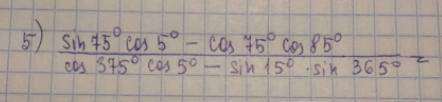 5) sin 75° cos 5° − cos 75° cos 85°
cos 375° cos 5° − sin 15° · sin 365° =